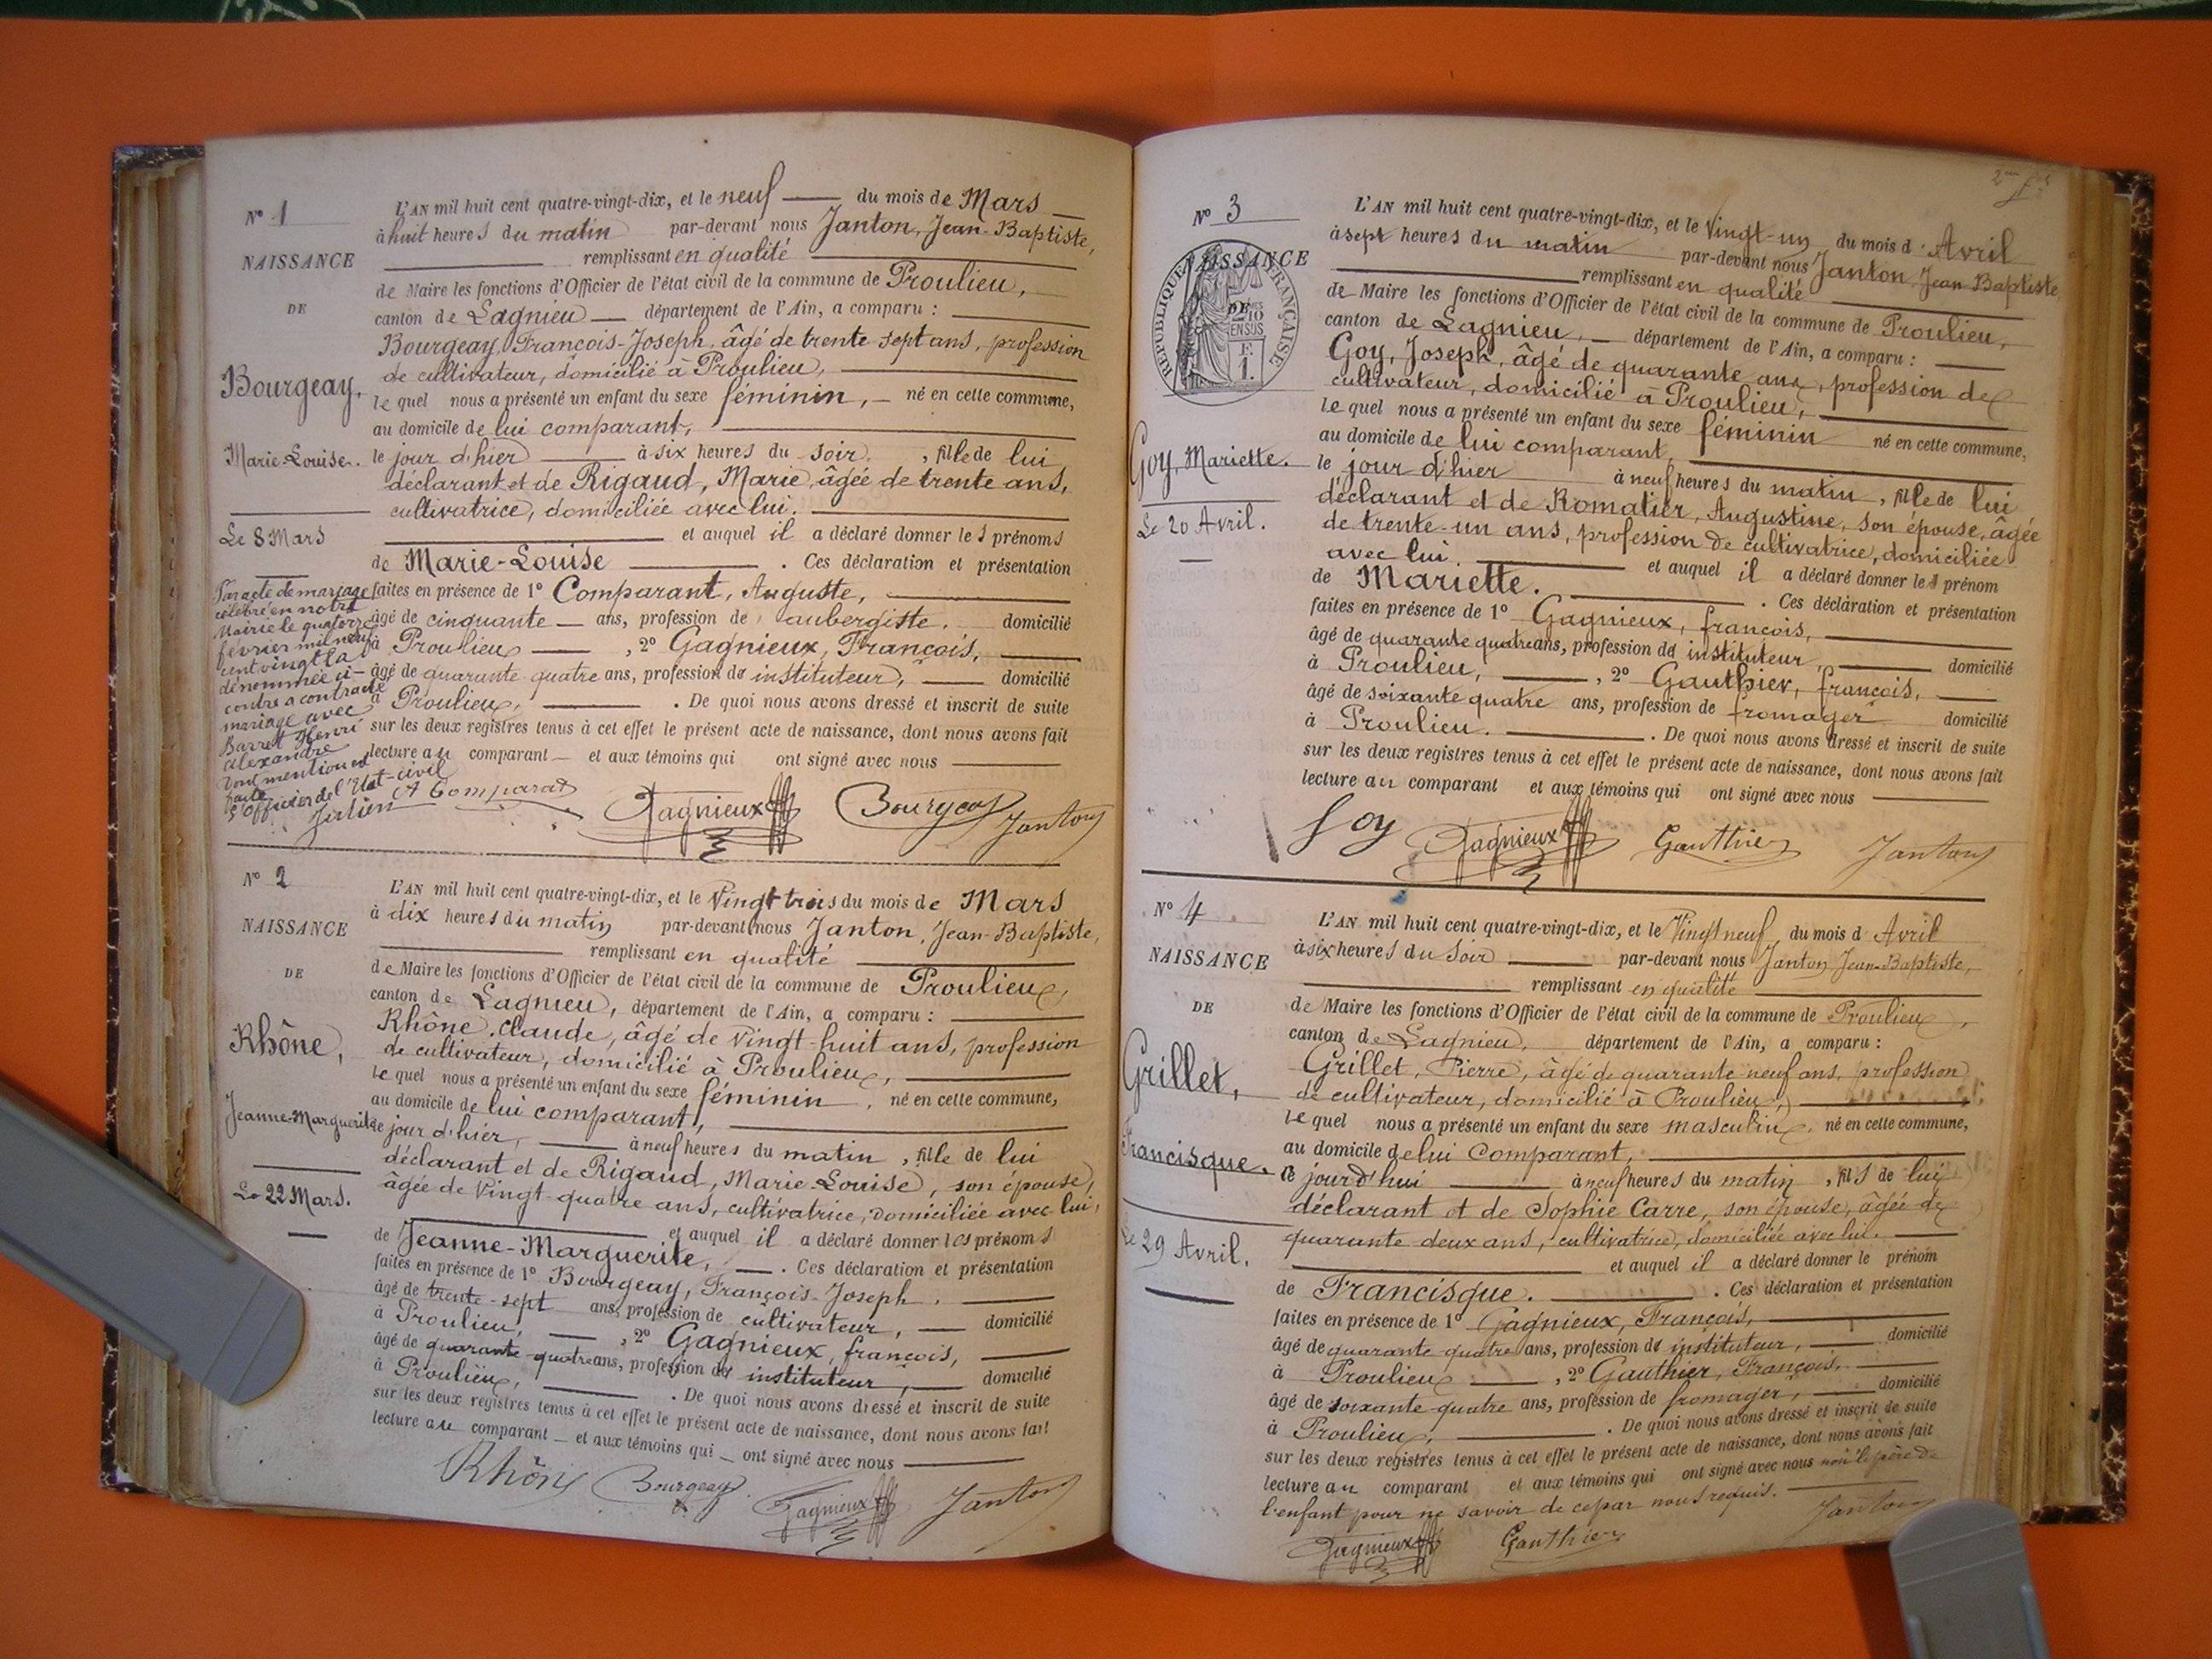 N° 1
NAISSANCE
DE
Bourgeay,
Marie-Louise.
Le 8 Mars
Par acte de mariage
célébré en notre
Mairie le quatorze
février mil neuf
cent vingt la
dénommée ci-
contre a contracté
mariage avec
Barret Henri
Alexandre
Dont mention est
faite
L'officier de l'Etat-civil
L'AN mil huit cent quatre-vingt-dix, et le neuf du mois de Mars
à huit heures du matin par-devant nous Janton, Jean-Baptiste,
remplissant en qualité
de Maire les fonctions d'Officier de l'état civil de la commune de Proulieu,
canton de Lagnieu département de l'Ain, a comparu :
Bourgeay, François-Joseph, âgé de trente sept ans, profession
de cultivateur, domicilié à Proulieu,
le quel nous a présenté un enfant du sexe féminin, né en cette commune,
au domicile de lui comparant,
le jour d'hier à six heures du soir, fille de lui
déclarant et de Rigaud, Marie, âgée de trente ans,
cultivatrice, domiciliée avec lui.
et auquel il a déclaré donner les prénoms
de Marie-Louise . Ces déclaration et présentation
faites en présence de 1° Comparant, Auguste,
âgé de cinquante ans, profession de aubergiste. domicilié
à Proulieu , 2° Gagnieux, François,
âgé de quarante quatre ans, profession de instituteur, domicilié
à Proulieu, . De quoi nous avons dressé et inscrit de suite
sur les deux registres tenus à cet effet le présent acte de naissance, dont nous avons fait
lecture au comparant et aux témoins qui ont signé avec nous
A Comparat Gagnieux Bourgeay Janton
N° 2
NAISSANCE
DE
Rhône,
Jeanne-Marguerite
Le 22 Mars.
L'AN mil huit cent quatre-vingt-dix, et le Vingt trois du mois de Mars
à dix heures du matin par-devant nous Janton, Jean-Baptiste,
remplissant en qualité
de Maire les fonctions d'Officier de l'état civil de la commune de Proulieu,
canton de Lagnieu, département de l'Ain, a comparu :
Rhône, Claude, âgé de Vingt-huit ans, profession
de cultivateur, domicilié à Proulieu,
le quel nous a présenté un enfant du sexe féminin, né en cette commune,
au domicile de lui comparant,
le jour d'hier, à neuf heures du matin, fille de lui
déclarant et de Rigaud, Marie-Louise, son épouse,
âgée de Vingt-quatre ans, cultivatrice, domiciliée avec lui,
et auquel il a déclaré donner les prénoms
de Jeanne-Marguerite, . Ces déclaration et présentation
faites en présence de 1° Bourgeay, François-Joseph,
âgé de trente-sept ans, profession de cultivateur, domicilié
à Proulieu, , 2° Gagnieux, françois,
âgé de quarante-quatre ans, profession de instituteur, domicilié
à Proulieu, . De quoi nous avons dressé et inscrit de suite
sur les deux registres tenus à cet effet le présent acte de naissance, dont nous avons fait
lecture au comparant et aux témoins qui ont signé avec nous
Rhône Bourgeay Gagnieux Janton
N° 3
NAISSANCE
DE
RÉPUBLIQUE FRANÇAISE
Goy, Mariette.
Le 20 Avril.
L'AN mil huit cent quatre-vingt-dix, et le Vingt-un du mois d' Avril
à sept heures du matin par-devant nous Janton, Jean-Baptiste,
remplissant en qualité
de Maire les fonctions d'Officier de l'état civil de la commune de Proulieu,
canton de Lagnieu, département de l'Ain, a comparu :
Goy, Joseph, âgé de quarante ans, profession de
cultivateur, domicilié à Proulieu,
le quel nous a présenté un enfant du sexe féminin né en cette commune,
au domicile de lui comparant,
le jour d'hier à neuf heures du matin, fille de lui
déclarant et de Romatier, Augustine, son épouse, âgée
de trente-un ans, profession de cultivatrice, domiciliée
avec lui. et auquel il a déclaré donner le prénom
de Mariette. . Ces déclaration et présentation
faites en présence de 1° Gagnieux, françois,
âgé de quarante quatre ans, profession de instituteur, domicilié
à Proulieu, , 2° Gauthier, françois,
âgé de soixante quatre ans, profession de fromager domicilié
à Proulieu. . De quoi nous avons dressé et inscrit de suite
sur les deux registres tenus à cet effet le présent acte de naissance, dont nous avons fait
lecture au comparant et aux témoins qui ont signé avec nous
Goy Gagnieux Gauthier Janton
N° 4
NAISSANCE
DE
Grillet,
Francisque.
Le 29 Avril.
L'AN mil huit cent quatre-vingt-dix, et le Vingt neuf du mois d Avril
à six heures du Soir par-devant nous Janton Jean-Baptiste,
remplissant en qualité
de Maire les fonctions d'Officier de l'état civil de la commune de Proulieu,
canton de Lagnieu, département de l'Ain, a comparu :
Grillet, Pierre, âgé de quarante neuf ans, profession
de cultivateur, domicilié à Proulieu,
le quel nous a présenté un enfant du sexe masculin, né en cette commune,
au domicile de lui Comparant,
ce jourd'hui à neuf heures du matin, fils de lui
déclarant et de Sophie Carre, son épouse, âgée de
quarante deux ans, cultivatrice, domiciliée avec lui.
et auquel il a déclaré donner le prénom
de Francisque. . Ces déclaration et présentation
faites en présence de 1° Gagnieux, François,
âgé de quarante quatre ans, profession de instituteur, domicilié
à Proulieu , 2° Gauthier, François,
âgé de soixante-quatre ans, profession de fromager, domicilié
à Proulieu, . De quoi nous avons dressé et inscrit de suite
sur les deux registres tenus à cet effet le présent acte de naissance, dont nous avons fait
lecture au comparant et aux témoins qui ont signé avec nous non le père de
l'enfant pour ne savoir de ce par nous requis.
Gagnieux Gauthier Janton